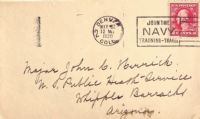 DENVER
COLO.
12 M
1920
JOIN THE
NAVY
TRAINING-TRAVEL
Major John C. Herrick
U.S. Public Health Service
Whipple Barracks
Arizona